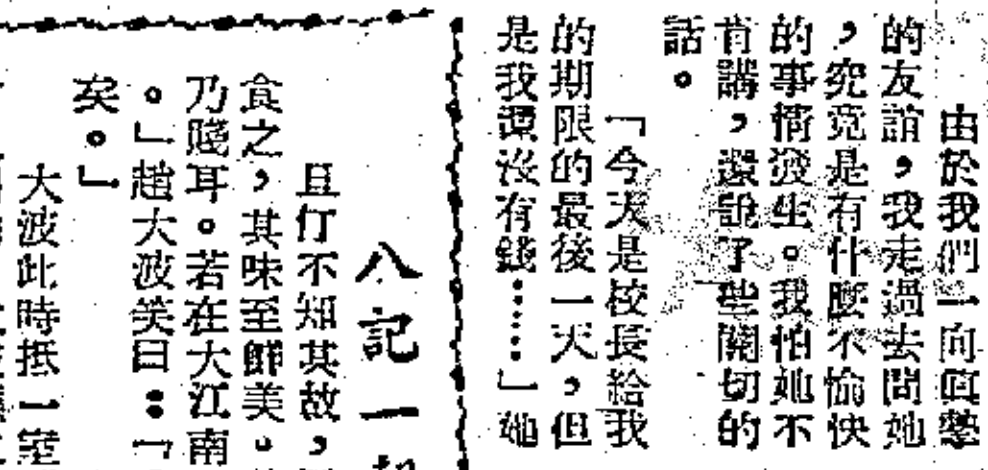 由於我們一向眞摯
的友誼，我走過去問她
，究竟是有什麼不愉快
的事情發生。我怕她不
肯講，還說了些關切的
話。
「今天是校長給我
的期限的最後一天，但
是我還沒有錢……」她
八記一
且仃不知其故，
食之，其味至鮮美。
乃賤耳。若在大江南
。」趙大波笑曰：「
矣。」
大波此時抵一室